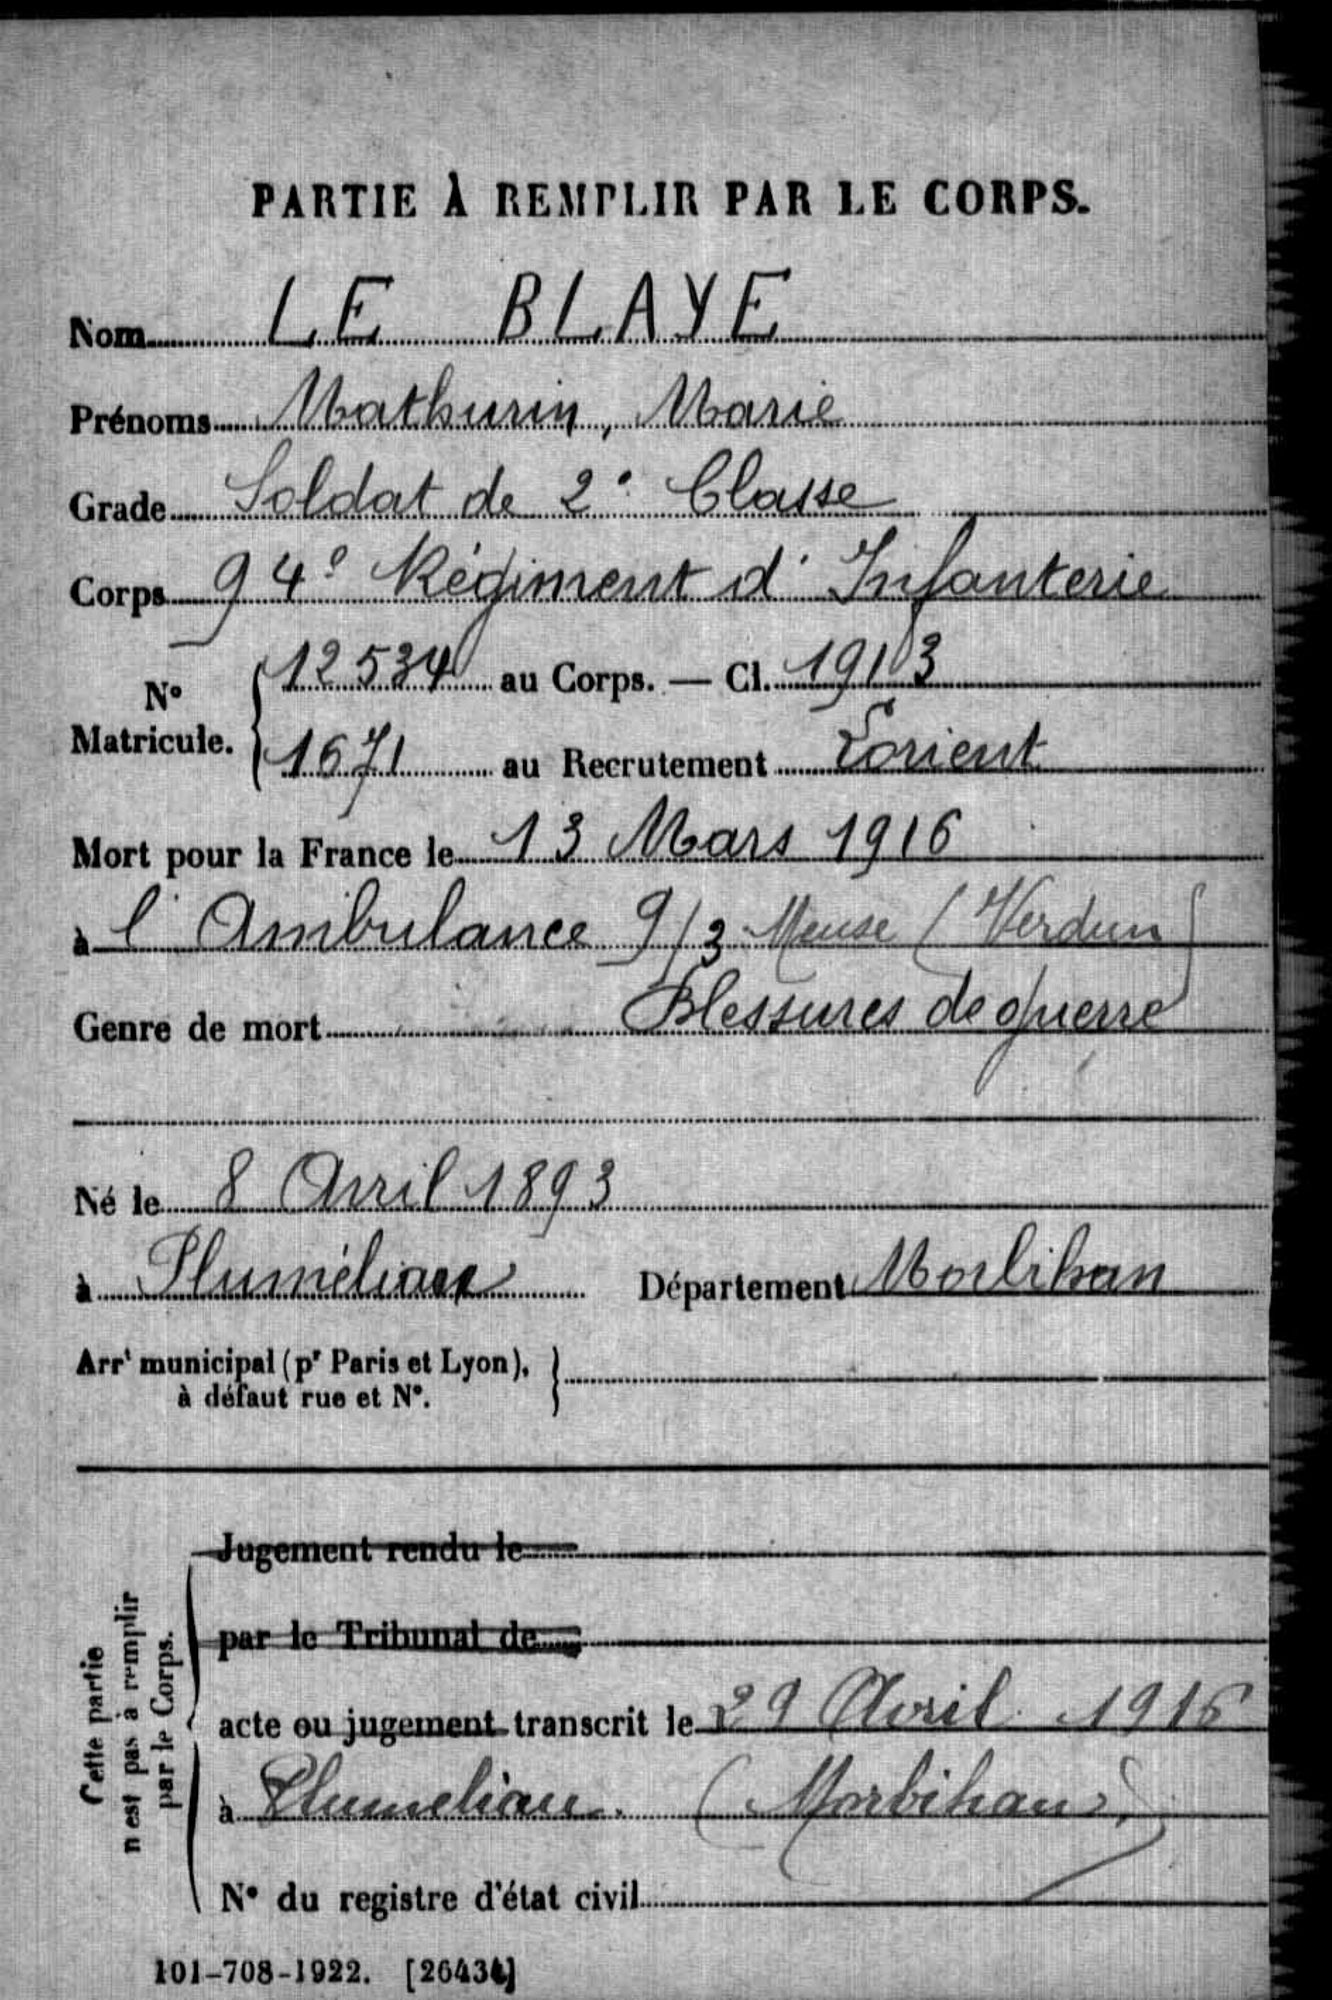 PARTIE À REMPLIR PAR LE CORPS.
Nom LE BLAYE
Prénoms Mathurin, Marie
Grade Soldat de 2e Classe
Corps 94e Régiment d'Infanterie
N° Matricule. { 12534 au Corps. — Cl. 1913
1671 au Recrutement Lorient
Mort pour la France le 13 Mars 1916
à l'Ambulance 9/3 Meuse (Verdun)
Genre de mort Blessures de guerre
Né le 8 Avril 1893
à Pluméliau Département Morbihan
Arrt municipal (pr Paris et Lyon), à défaut rue et N°. }
Cette partie n'est pas à remplir par le Corps.
Jugement rendu le
par le Tribunal de
acte ou jugement transcrit le 29 Avril 1916
à Plumeliau (Morbihan)
N° du registre d'état civil
101-708-1922. [26434]